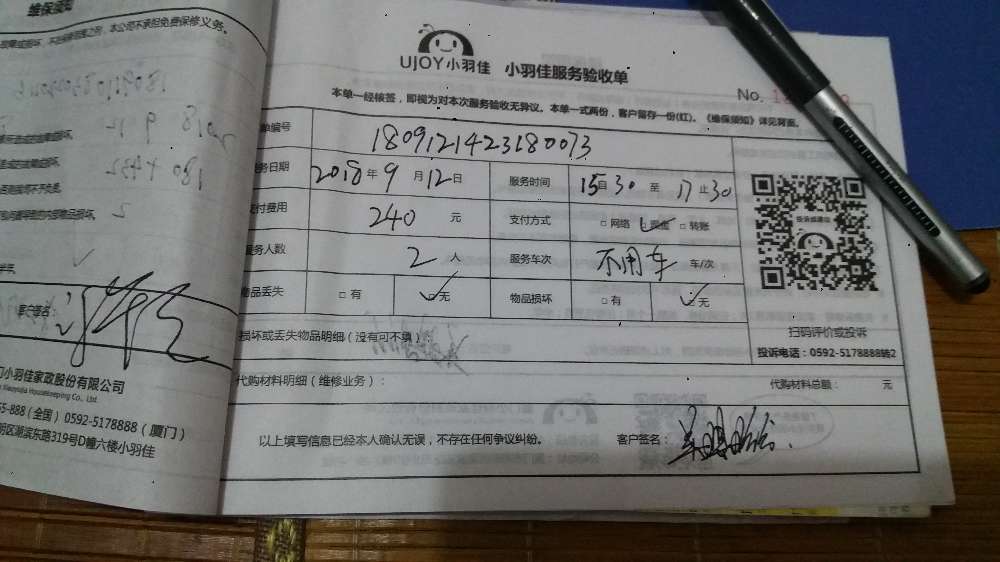 维保须知
本公司不承担免费保修义务。
客户签名
小羽佳家政股份有限公司
Housekeeping Co., Ltd.
-888（全国）0592-5178888（厦门）
明区湖滨东路319号D幢六楼小羽佳
UJOY小羽佳 小羽佳服务验收单
No.
本单一经核签，即视为对本次服务验收无异议。本单一式两份，客户留存一份(红)。《维保须知》详见背面。
单编号 1809121423180073
务日期 2018年9月12日 服务时间 15 30 至 17 30
付费用 240 元 支付方式 □网络 □现金 □转账
服务人数 2 人 服务车次 不用车 车/次
物品丢失 □有 □无 物品损坏 □有 □无
投诉或建议
扫码评价或投诉
投诉电话：0592-5178888转2
损坏或丢失物品明细（没有可不填）：
代购材料明细（维修业务）： 代购材料总额： 元
以上填写信息已经本人确认无误，不存在任何争议纠纷。 客户签名：